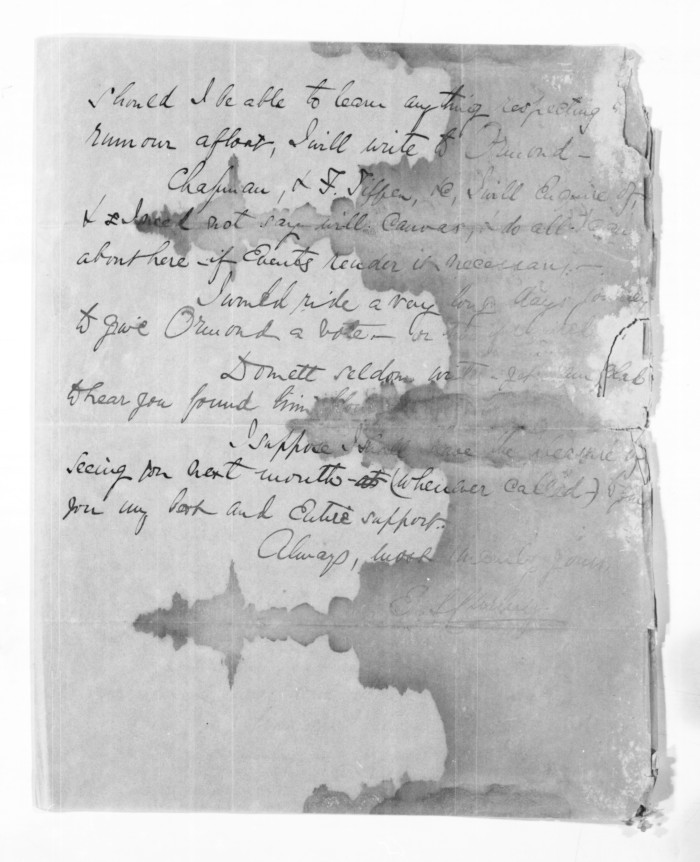 should I be able to learn anything respecting
rumour afloat, I will write to Ormond –
Chapman, & F. Tiffen, &c, I will enquire of,
& I need not say will canvas, & do all I can
about here – if Events render it necessary. –
I would ride a very long days journey
to give Ormond a vote – or
Domett seldom writes – glad
to hear you found him
I suppose I shall have the pleasure of
seeing you next month – (whenever called)
you my best and Entire support.
Always, most yours